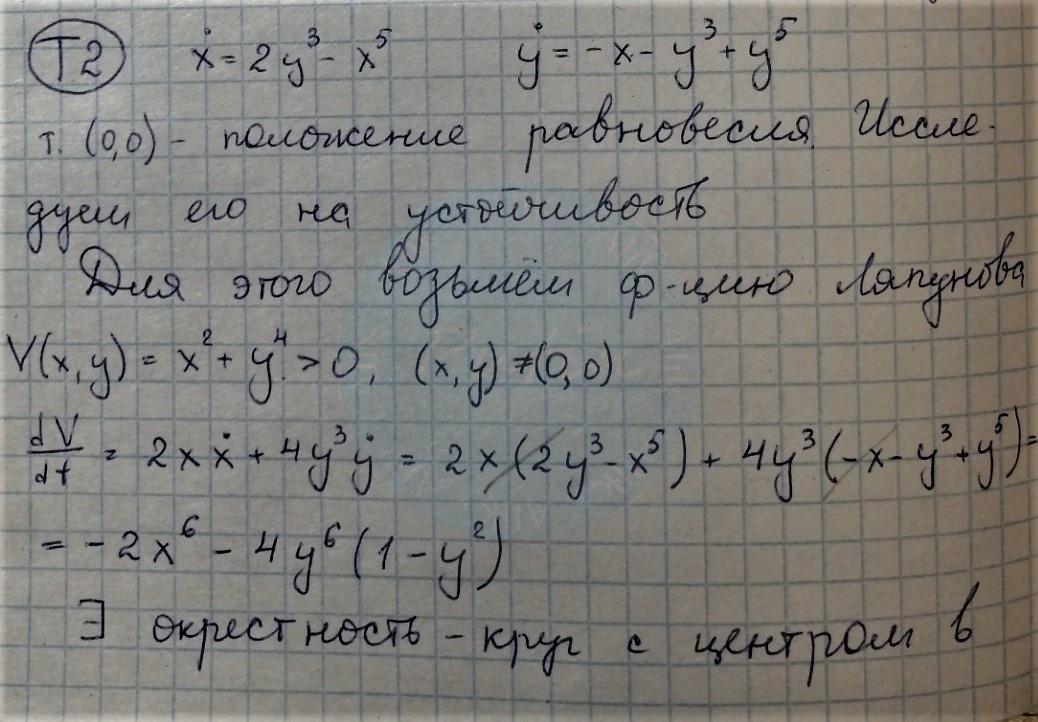 T2 ẋ = 2y³ - x⁵ ẏ = -x - y³ + y⁵
т. (0,0) - положение равновесия. Иссле-
дуем его на устойчивость
Для этого возьмём ф-цию Ляпунова
V(x, y) = x² + y⁴ > 0, (x, y) ≠ (0, 0)
dV/dt = 2xẋ + 4y³ẏ = 2x(2y³ - x⁵) + 4y³(-x - y³ + y⁵) =
= -2x⁶ - 4y⁶(1 - y²)
∃ окрестность - круг с центром в